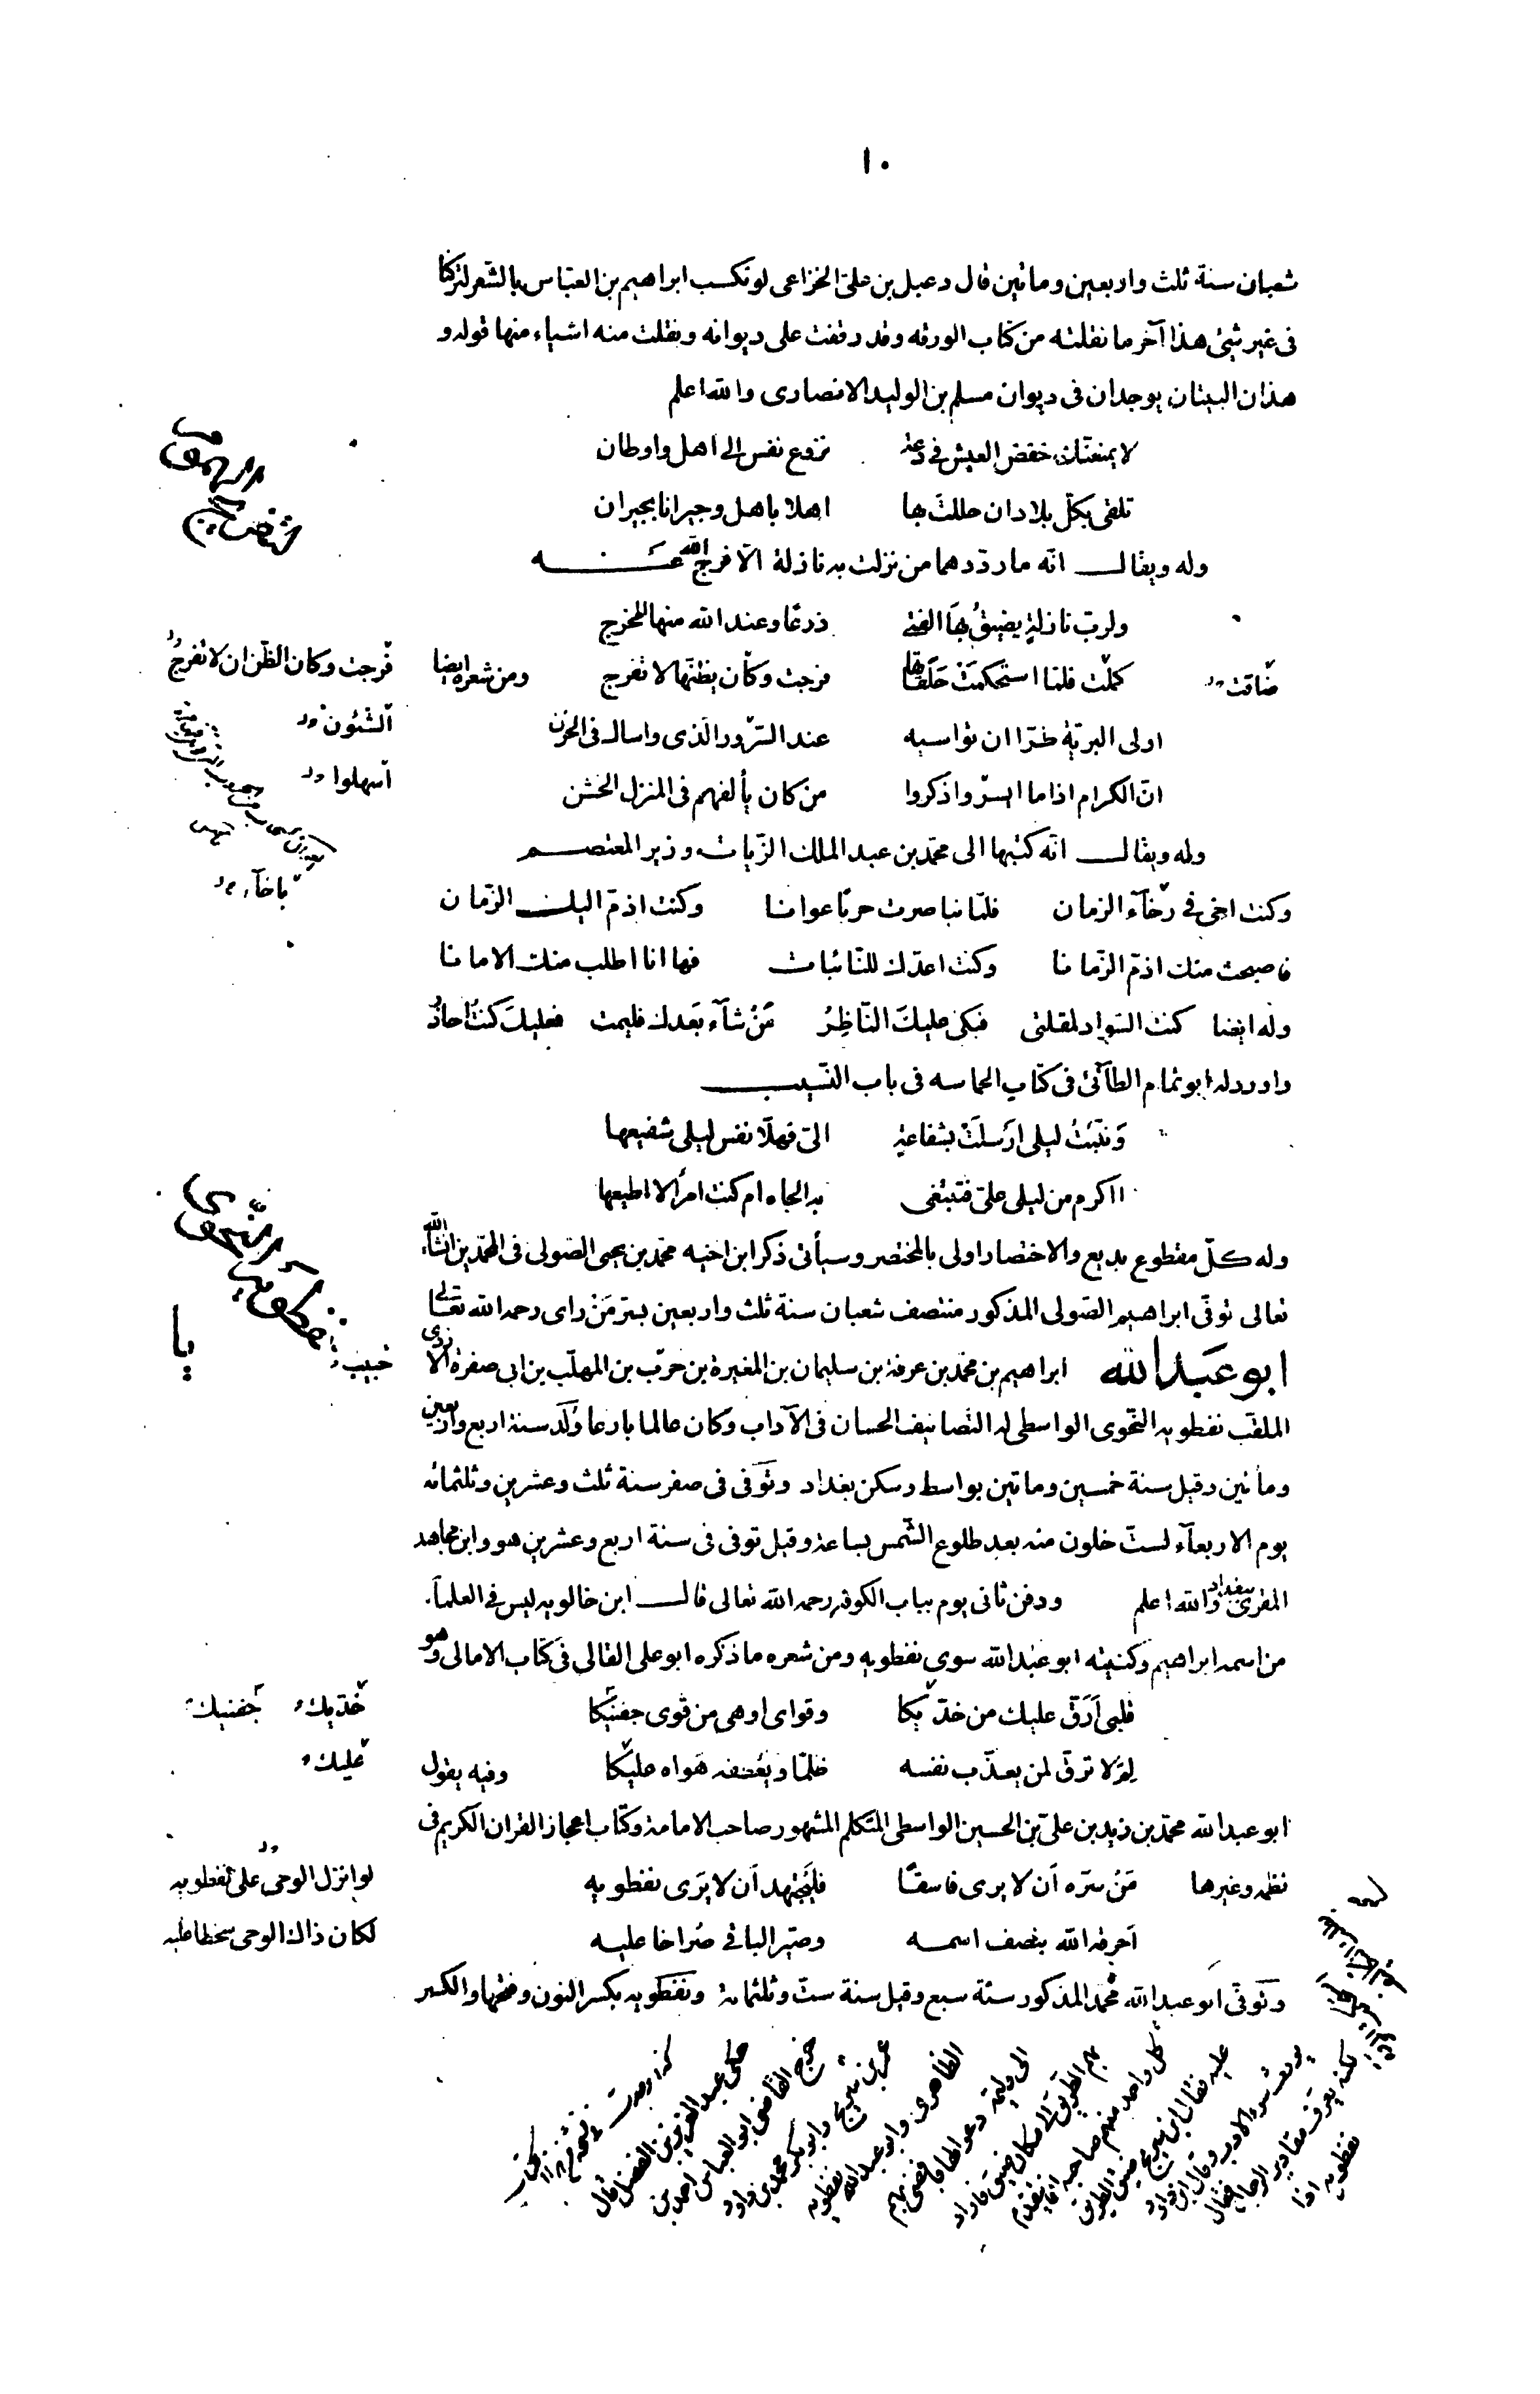 ١٠
شعبان سنة ثلث واربعين ومائتين قال دعبل بن على الخزاعى لو تكسب ابراهيم بن العباس بالشعر لتركنا
فى غير شئ هذا آخر ما نقلته من كتاب الورقه وقد وقفت على ديوانه ونقلت منه اشياء منها قوله و
هذان البيتان يوجدان فى ديوان مسلم بن الوليد الانصارى والله اعلم
لا يمنعنّك خفض العيش فى دعة نزوع نفس الى اهل واوطان
تلقى بكلّ بلاد ان حللتَ بها اهلا باهل وجيرانا بجيران
وله ويقال انّه ما ردّدهما من نزلت به نازلة الّا فرج الله عنه
ولربّ نازلةٍ يضيقُ بهَا الفتى ذرعًا وعند الله منها المخرج
كملت فلمّا استحكمَتْ حَلَقاتها فرجت وكان يظنّها لا تفرج ومن شعره ايضا
ضاقت
فرجت وكان الظن ان لا تفرج
اولى البريّة طرّا ان تواسيه عند السّرور الّذى واساك فى الحزن
الشئون
انّ الكرام اذا ما ايسروا ذكروا من كان يألفهم فى المنزل الخشن
اسهلوا
وله ويقال انّه كتبها الى محمّد بن عبد الملك الزّيات وزير المعتصم
باخآء
وكنت اخى فى رخآء الزمان فلمّا نبا صرت حربًا عوانا وكنت اذمّ اليك الزّمان
فاصبحت منك اذمّ الزّمانا وكنت اعدّك للنّائبات فها انا اطلب منك الامانا
وله ايضا كنت السّواد لمقلتى فبكى عليكَ النّاظِرُ مَنْ شآء بَعدك فليمت فعليكَ كنتُ احاذرُ
واورد له ابو تمام الطآئىّ فى كتاب الحماسه فى باب النّسيب
وَنبّئتُ ليلى ارَسلَتْ بشفاعةٍ الىّ فهلّا نفس ليلى شفيعها
ااكرم من ليلى علىّ فتبتغى به الجاه ام كنت امرأ لا اطيعها
وله كلّ مقطوع بديع والاختصار اولى بالمختصر وسيأتى ذكر ابن اخيه محمّد بن يحيى الصّولى فى المحمّدين انشاء الله
تعالى توفّى ابراهيم الصّولى المذكور منتصف شعبان سنة ثلث واربعين بسرّ مَنْ راى رحمه الله تعالى
ابو عبد الله ابراهيم بن محمّد بن عرفة بن سليمان بن المغيرة بن حرب بن المهلّب بن ابى صفرة الازدى
حبيب
الملقّب نفطويه النّحوى الواسطى له التّصانيف الحسان فى الآداب وكان عالما بارعا ولد سنة اربع واربعين
ومائتين وقيل سنة خمسين وماتين بواسط وسكن بغداد وتوفى فى صفر سنة ثلث وعشرين وثلثمائه
يوم الاربعآء لستّ خلون منه بعد طلوع الشّمس بساعة وقيل توفى فى سنة اربع وعشرين هو وابن مجاهد
المقرى ببغداد والله اعلم ودفن ثانى يوم بباب الكوفه رحمه الله تعالى قال ابن خالويه ليس فى العلمآء
من اسمه ابراهيم وكنيته ابو عبد الله سوى نفطويه ومن شعره ما ذكره ابو على القالى فى كتاب الامالى وهو
قلبى اَرَقّ عليك من خدّيكا وقواى اوهى من قوى جفنيكا
خديك جفنيك
لِمَ لا ترقّ لمن يعذّب نفسه ظلمًا ويعطفه هَواه عليكا وفيه يقول
عليك
ابو عبد الله محمّد بن زيد بن علىّ بن الحسين الواسطى المتكلم المشهور صاحب الامامة وكتاب اعجاز القران الكريم فى
نظمه وغيرها مَنْ سرّه اَن لا يرى فاسقًا فليَجتهد اَن لا يَرى نفطويه
لو انزل الوحى على نفطويه
احرقه الله بنصف اسمه وصيّر الباقى صُراخا عليه
لكان ذاك الوحى سخطا عليه
وتوفّى ابو عبد الله محّمد المذكور سنة سبع وقيل سنة ستّ وثلثمائة ونفطويه بكسر النون وفتحها والكسر
حكى عبد العزيز بن الفضل قال
خرج القاضى ابو العباس احمد بن
عمر بن سريج وابو بكر محمد بن داود
الظاهرى وابو عبد الله نفطويه
الى وليمة دعوا لها فافضى بهم
بهم الطريق الى مكان ضيق فاراد
كل واحد منهم صاحبه ان يتقدم
عليه فقال ابن سريج ضيق الطريق
يورث سوء الادب وقال ابن داود
لكنه يعرف مقادير الرجال فقال
نفطويه اذا